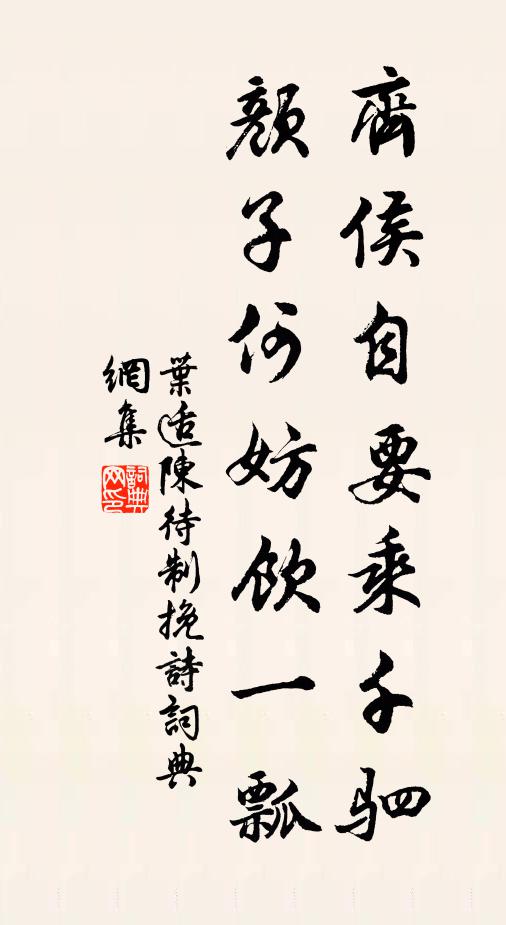 齊侯自要乘千駟
顏子何妨飲一瓢
葉适陳待制挽詩詞典
網集
詞典網印